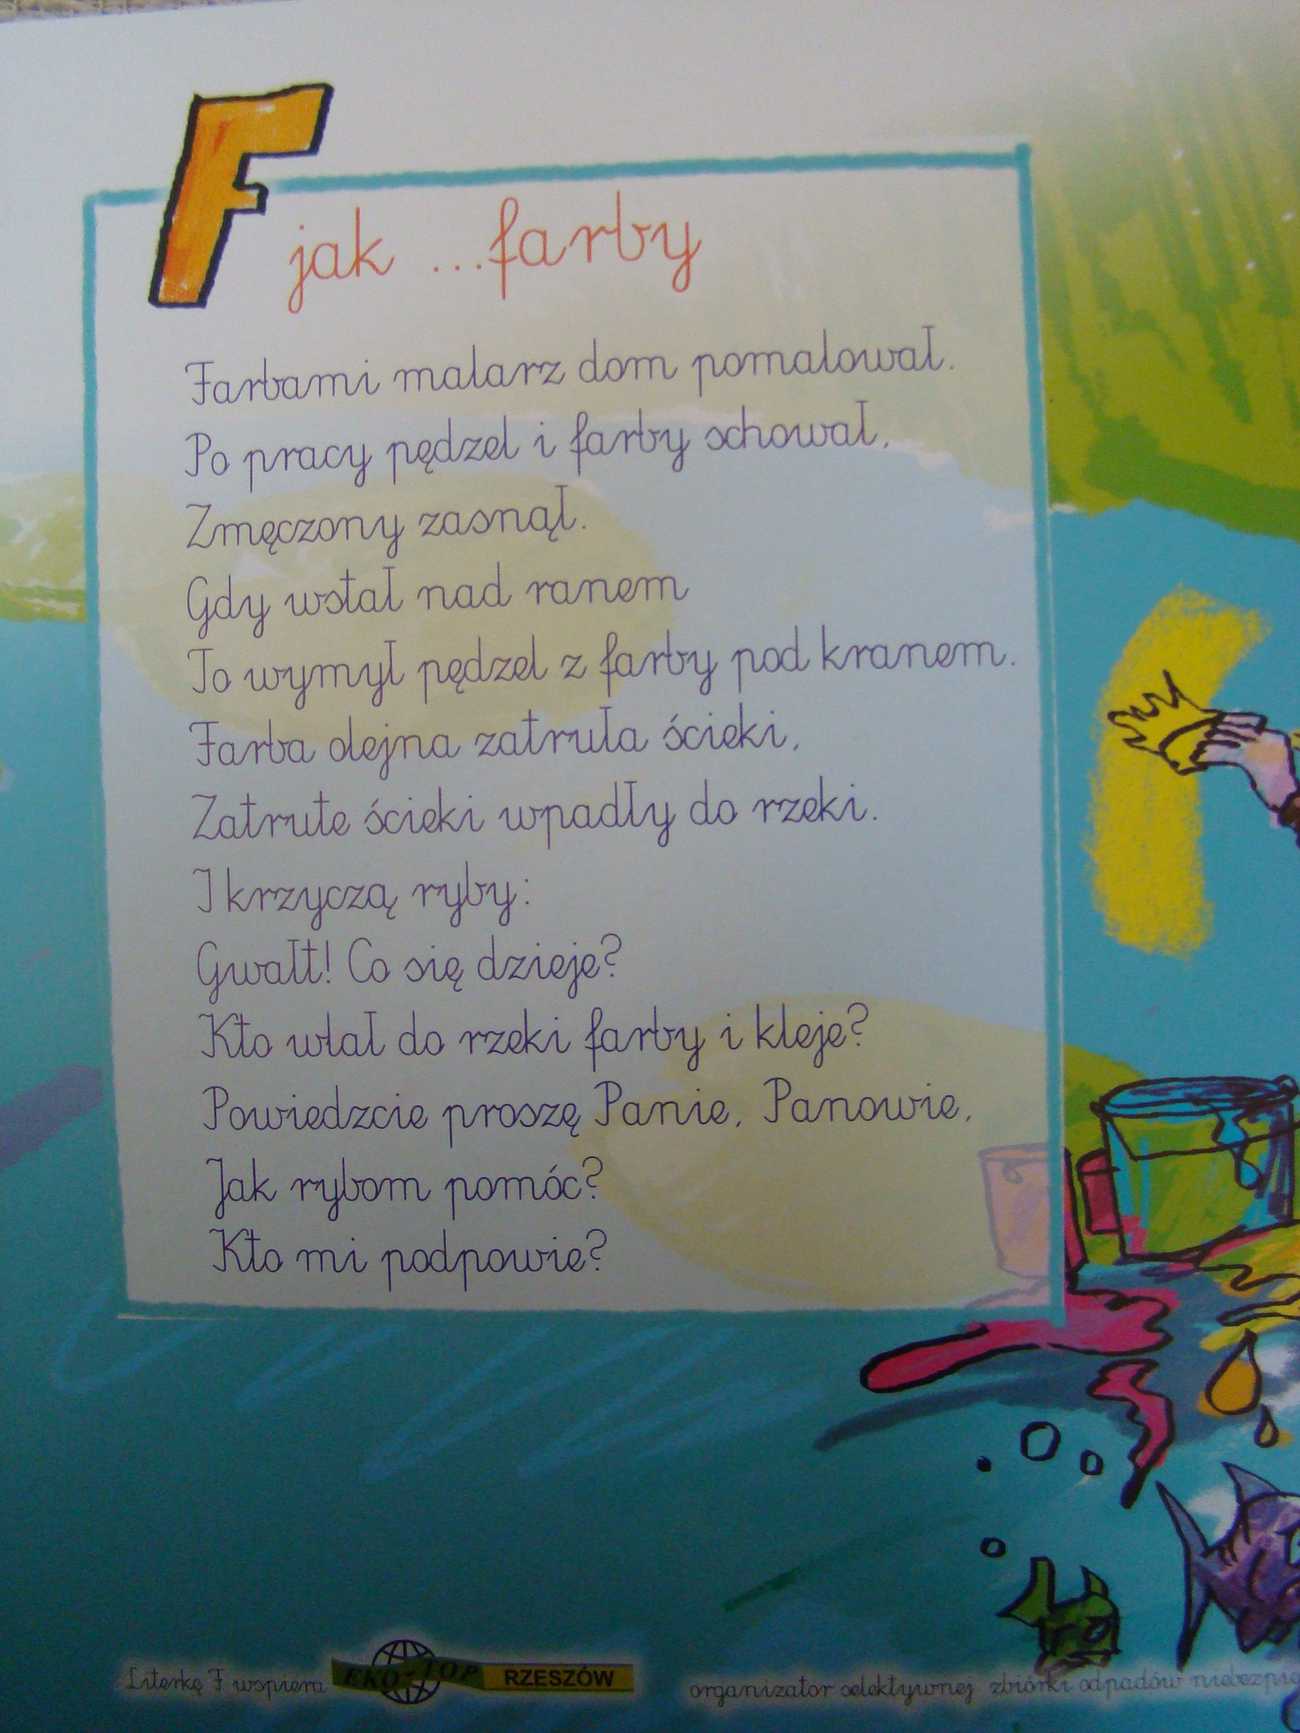 F jak ...farby
Farbami malarz dom pomalował.
Po pracy pędzel i farby schował,
Zmęczony zasnął.
Gdy wstał nad ranem
To wymył pędzel z farby pod kranem.
Farba olejna zatruła ścieki,
Zatrute ścieki wpadły do rzeki.
I krzyczą ryby:
Gwałt! Co się dzieje?
Kto wlał do rzeki farby i kleje?
Powiedzcie proszę Panie, Panowie,
Jak rybom pomóc?
Kto mi podpowie?
Literkę F wspiera EKO-TOP RZESZÓW organizator selektywnej zbiórki odpadów